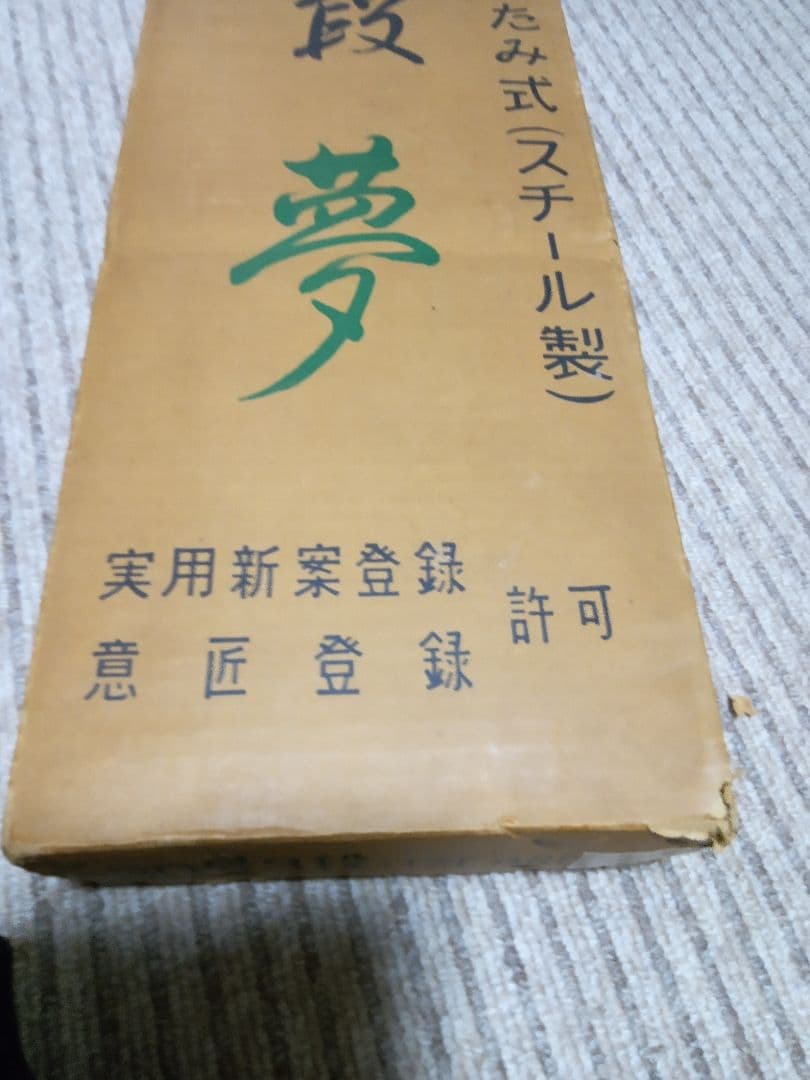 たみ式(スチール製)
段
夢
実用新案登録
意匠登録
許可